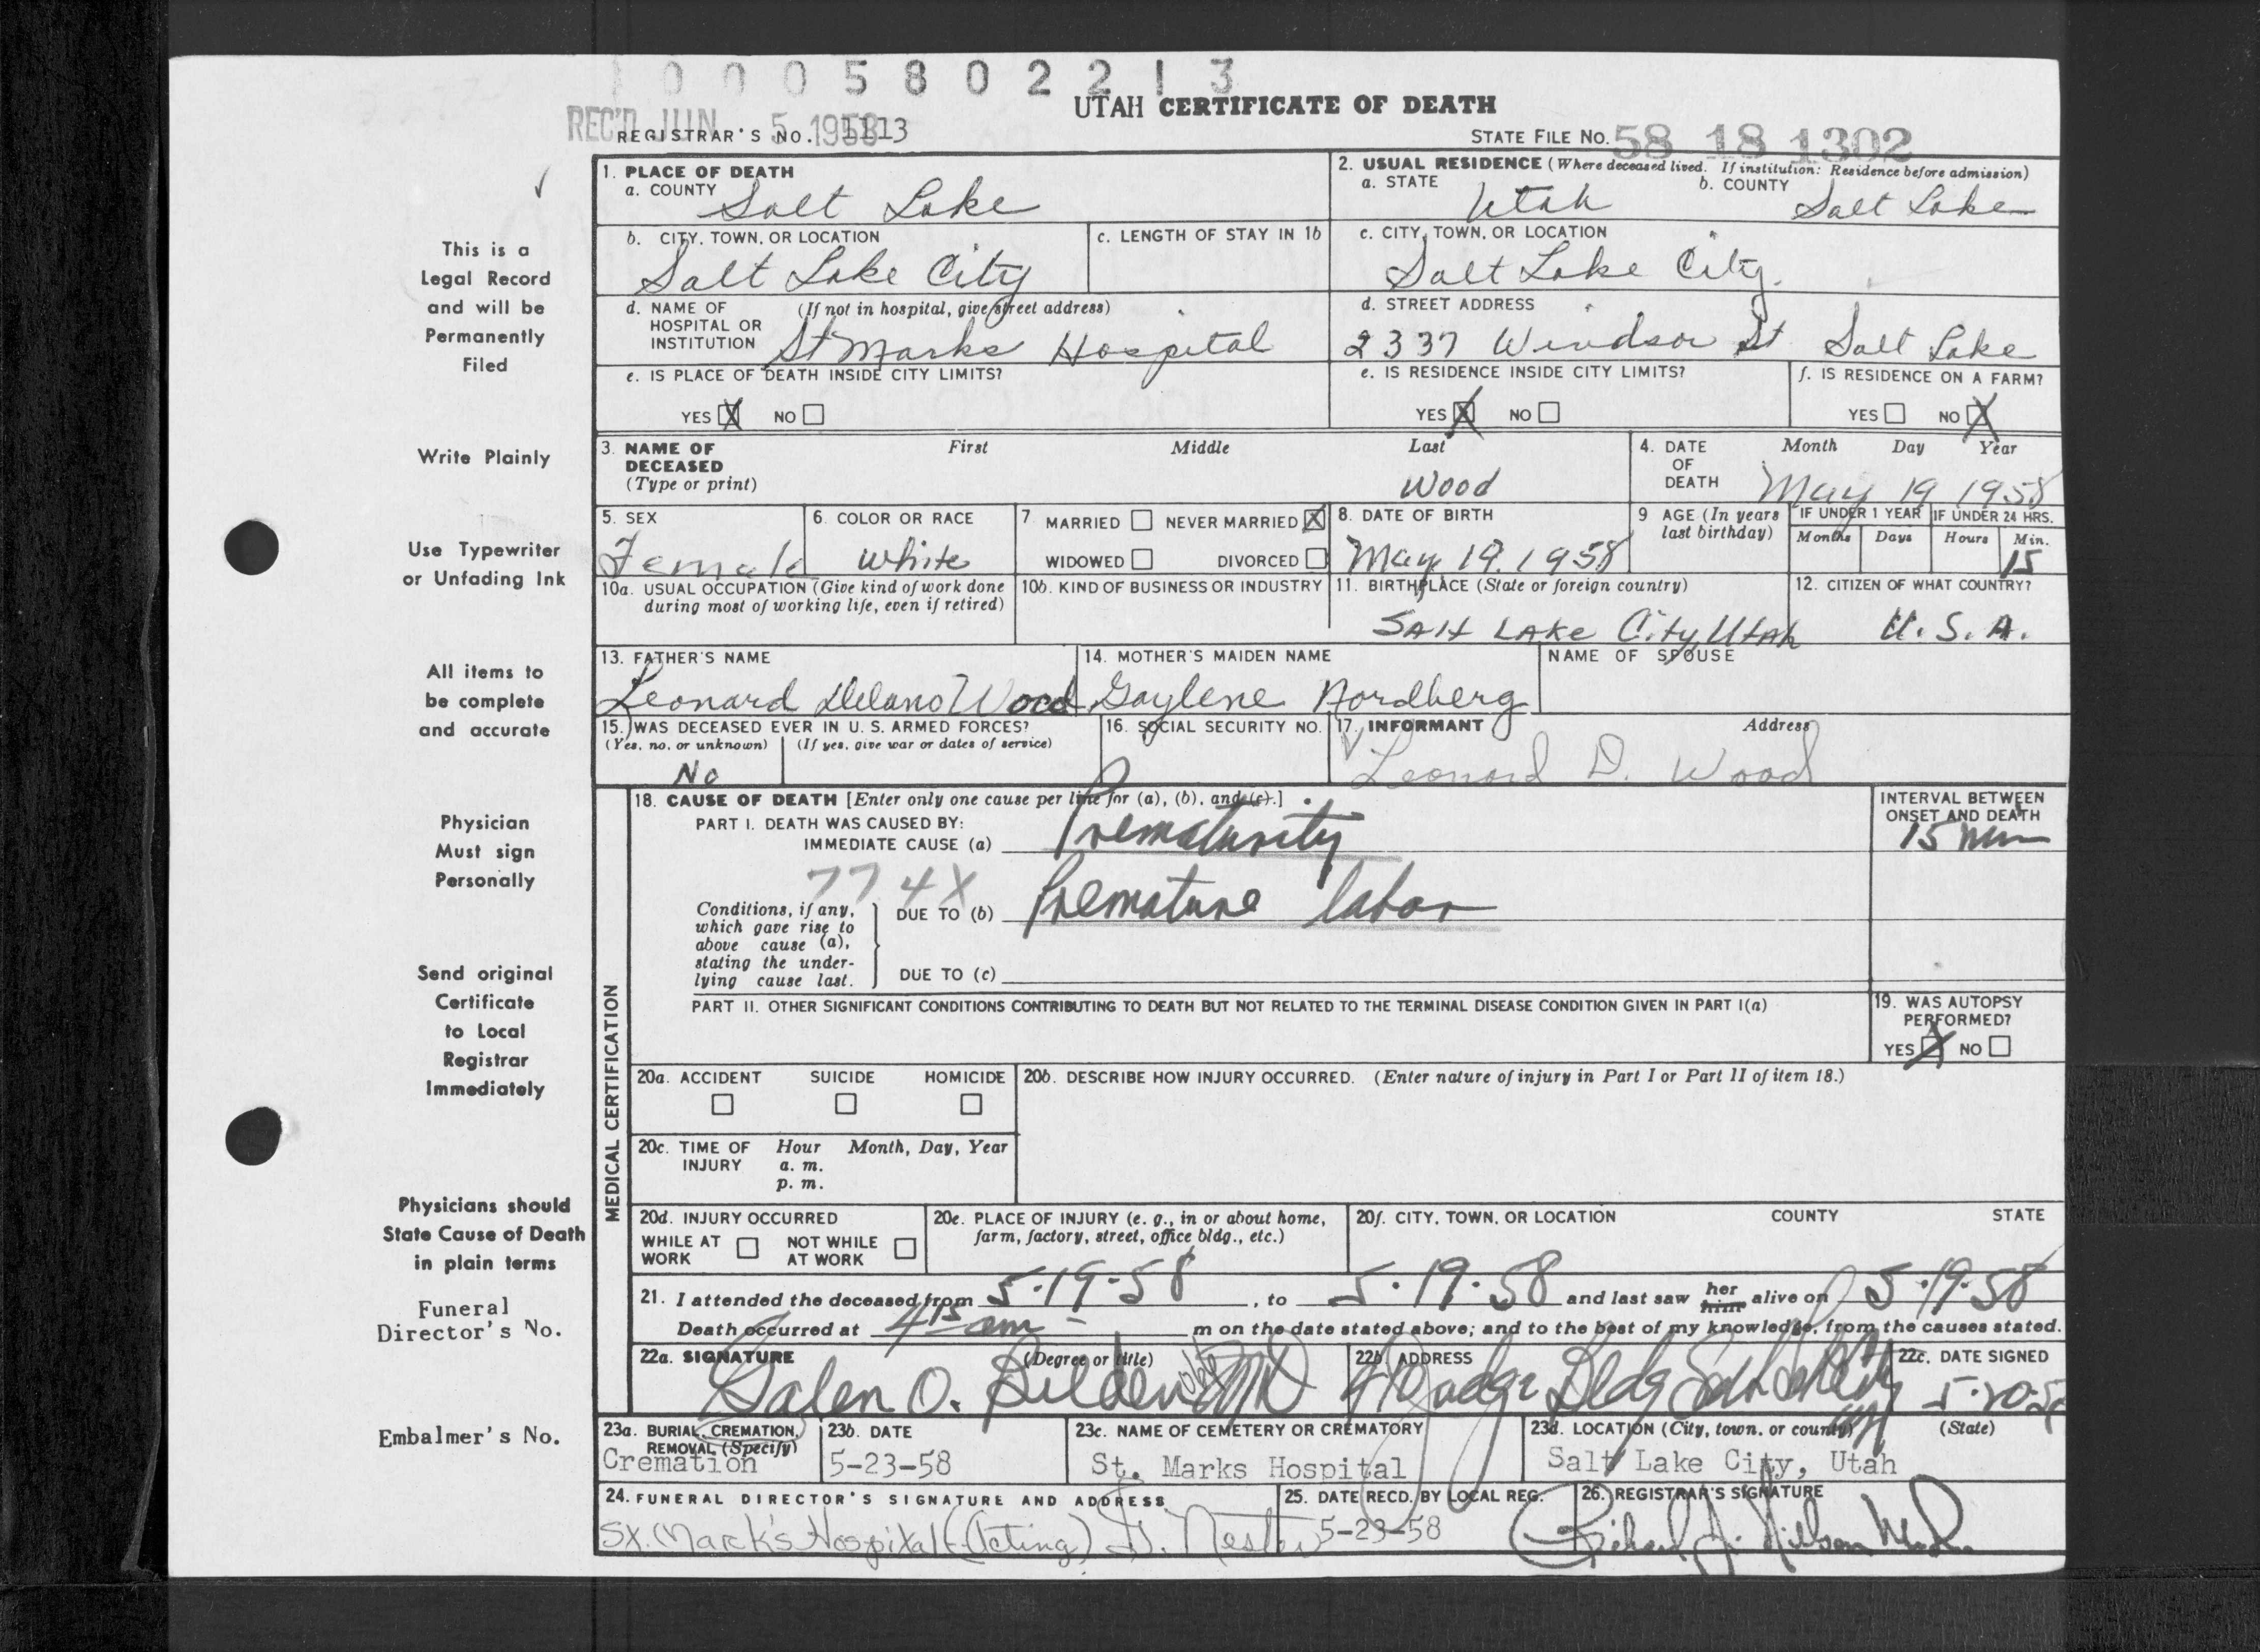 1 0 0 0 5 8 0 2 2 1 3
UTAH CERTIFICATE OF DEATH
REC'D JUN 5 1958
REGISTRAR'S NO. 1113
STATE FILE NO. 58 18 1302
1. PLACE OF DEATH
a. COUNTY Salt Lake
2. USUAL RESIDENCE (Where deceased lived. If institution: Residence before admission)
a. STATE Utah b. COUNTY Salt Lake
b. CITY, TOWN, OR LOCATION Salt Lake City
c. LENGTH OF STAY IN 1b
c. CITY, TOWN, OR LOCATION Salt Lake City.
d. NAME OF HOSPITAL OR INSTITUTION (If not in hospital, give street address) St Marks Hospital
d. STREET ADDRESS 2337 Windsor St Salt Lake
e. IS PLACE OF DEATH INSIDE CITY LIMITS?
YES X NO
e. IS RESIDENCE INSIDE CITY LIMITS?
YES X NO
f. IS RESIDENCE ON A FARM?
YES NO X
3. NAME OF DECEASED (Type or print) First Middle Last
Wood
4. DATE OF DEATH Month Day Year
May 19 1958
5. SEX Female
6. COLOR OR RACE White
7. MARRIED NEVER MARRIED X
WIDOWED DIVORCED
8. DATE OF BIRTH May 19. 1958
9 AGE (In years last birthday)
IF UNDER 1 YEAR Months Days
IF UNDER 24 HRS. Hours Min. 15
10a. USUAL OCCUPATION (Give kind of work done during most of working life, even if retired)
10b. KIND OF BUSINESS OR INDUSTRY
11. BIRTHPLACE (State or foreign country) Salt Lake City, Utah
12. CITIZEN OF WHAT COUNTRY? U.S.A.
13. FATHER'S NAME Leonard Delano Wood
14. MOTHER'S MAIDEN NAME Gaylene Nordberg
NAME OF SPOUSE
15. WAS DECEASED EVER IN U. S. ARMED FORCES?
(Yes, no, or unknown) (If yes, give war or dates of service)
No
16. SOCIAL SECURITY NO.
17. INFORMANT Address
Leonard D. Wood
18. CAUSE OF DEATH [Enter only one cause per line for (a), (b), and (c).]
PART I. DEATH WAS CAUSED BY:
IMMEDIATE CAUSE (a) Prematurity
INTERVAL BETWEEN ONSET AND DEATH
15 min
774X
Conditions, if any, which gave rise to above cause (a), stating the underlying cause last.
DUE TO (b) Premature labor
DUE TO (c)
PART II. OTHER SIGNIFICANT CONDITIONS CONTRIBUTING TO DEATH BUT NOT RELATED TO THE TERMINAL DISEASE CONDITION GIVEN IN PART I(a)
19. WAS AUTOPSY PERFORMED?
YES X NO
MEDICAL CERTIFICATION
20a. ACCIDENT SUICIDE HOMICIDE
20b. DESCRIBE HOW INJURY OCCURRED. (Enter nature of injury in Part I or Part II of item 18.)
20c. TIME OF INJURY Hour Month, Day, Year
a. m.
p. m.
20d. INJURY OCCURRED
WHILE AT WORK NOT WHILE AT WORK
20e. PLACE OF INJURY (e. g., in or about home, farm, factory, street, office bldg., etc.)
20f. CITY, TOWN, OR LOCATION COUNTY STATE
21. I attended the deceased from 5-19-58, to 5-19-58 and last saw her him alive on 5-19-58
Death occurred at 4 15 am m on the date stated above; and to the best of my knowledge, from the causes stated.
22a. SIGNATURE (Degree or title)
Galen O. Belden MD
22b ADDRESS
Judge Bldg
22c. DATE SIGNED
5-20-58
23a. BURIAL, CREMATION, REMOVAL (Specify)
Cremation
23b. DATE
5-23-58
23c. NAME OF CEMETERY OR CREMATORY
St. Marks Hospital
23d. LOCATION (City, town, or county) (State)
Salt Lake City, Utah
24. FUNERAL DIRECTOR'S SIGNATURE AND ADDRESS
St. Mark's Hospital (Acting)
25. DATE RECD. BY LOCAL REG.
5-23-58
26. REGISTRAR'S SIGNATURE
This is a
Legal Record
and will be
Permanently
Filed
Write Plainly
Use Typewriter
or Unfading Ink
All items to
be complete
and accurate
Physician
Must sign
Personally
Send original
Certificate
to Local
Registrar
Immediately
Physicians should
State Cause of Death
in plain terms
Funeral
Director's No.
Embalmer's No.